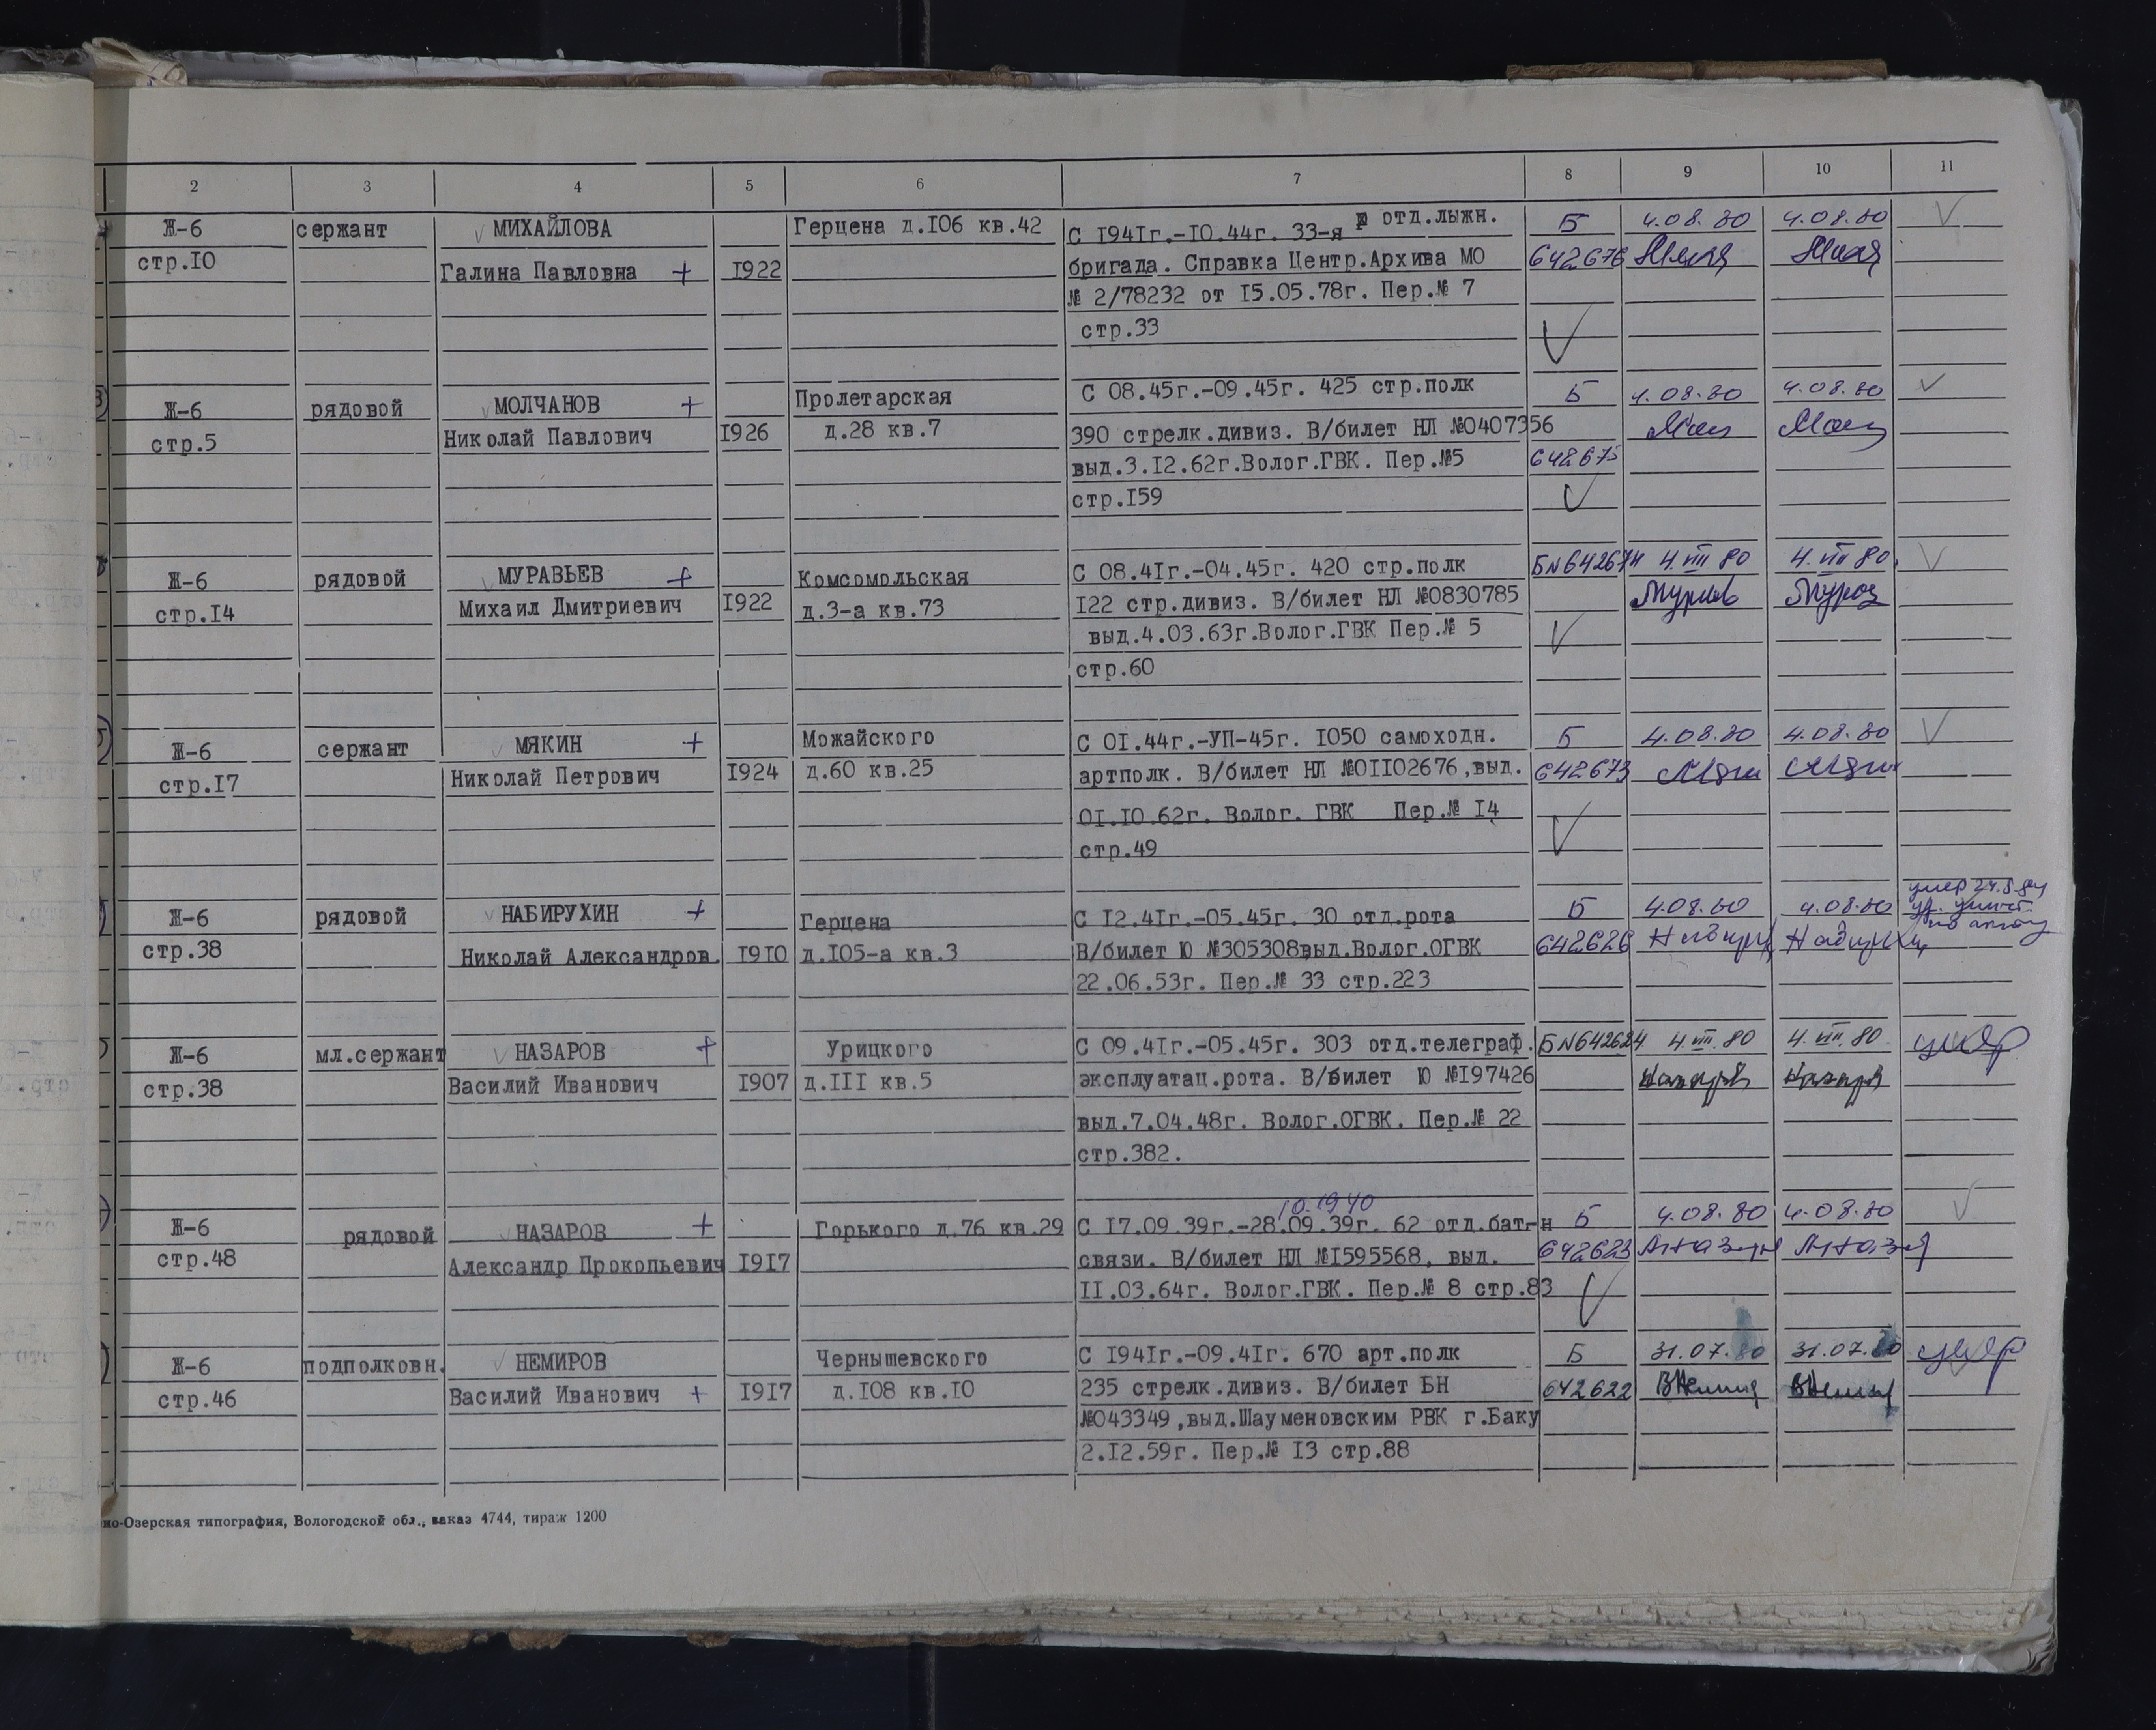 2 3 4 5 6 7 8 9 10 11
Ж-6 сержант МИХАЙЛОВА Герцена д.I06 кв.42 С I94Iг.-I0.44г. 33-я отд.лыжн. Б 4.08.80 4.08.80
стр.I0 Галина Павловна + I922 бригада. Справка Центр.Архива МО 642676
№ 2/78232 от I5.05.78г. Пер.№ 7
стр.33
Ж-6 рядовой МОЛЧАНОВ + Пролетарская С 08.45г.-09.45г. 425 стр.полк Б 4.08.80 4.08.80
стр.5 Николай Павлович I926 д.28 кв.7 390 стрелк.дивиз. В/билет НЛ №0407356
выд.3.I2.62г.Волог.ГВК. Пер.№5 642675
стр.I59
Ж-6 рядовой МУРАВЬЕВ + Комсомольская С 08.4Iг.-04.45г. 420 стр.полк Б№642674 4.VIII 80 4.VIII 80.
стр.I4 Михаил Дмитриевич I922 д.3-а кв.73 I22 стр.дивиз. В/билет НЛ №0830785
выд.4.03.63г.Волог.ГВК Пер.№ 5
стр.60
Ж-6 сержант МЯКИН + Можайского С 0I.44г.-УП-45г. I050 самоходн. Б 4.08.80 4.08.80
стр.I7 Николай Петрович I924 д.60 кв.25 артполк. В/билет НЛ №0II02676,выд. 642673
0I.I0.62г. Волог. ГВК Пер.№ I4
стр.49
Ж-6 рядовой НАБИРУХИН + Герцена С I2.4Iг.-05.45г. 30 отд.рота Б 4.08.80 4.08.80 умер
стр.38 Николай Александров. I9I0 д.I05-а кв.3 В/билет Ю №305308,выд.Волог.ОГВК 642626 по акту
22.06.53г. Пер.№ 33 стр.223
Ж-6 мл.сержант НАЗАРОВ + Урицкого С 09.4Iг.-05.45г. 303 отд.телеграф. Б№642624 4.VIII.80 4.VIII.80 умер
стр.38 Василий Иванович I907 д.III кв.5 эксплуатац.рота. В/билет Ю №I97426
выд.7.04.48г. Волог.ОГВК. Пер.№ 22
стр.382.
10.1940
Ж-6 рядовой НАЗАРОВ + Горького д.76 кв.29 С I7.09.39г.-28.09.39г. 62 отд.бат-н Б 4.08.80 4.08.80
стр.48 Александр Прокопьевич I9I7 связи. В/билет НЛ №I595568, выд. 642623
II.03.64г. Волог.ГВК. Пер.№ 8 стр.83
Ж-6 подполковн. НЕМИРОВ Чернышевского С I94Iг.-09.4Iг. 670 арт.полк Б 31.07.80 31.07.80 умер
стр.46 Василий Иванович + I9I7 д.I08 кв.I0 235 стрелк.дивиз. В/билет БН 642622
№043349,выд.Шауменовским РВК г.Баку
2.I2.59г. Пер.№ I3 стр.88
но-Озерская типография, Вологодской обл., заказ 4744, тираж 1200